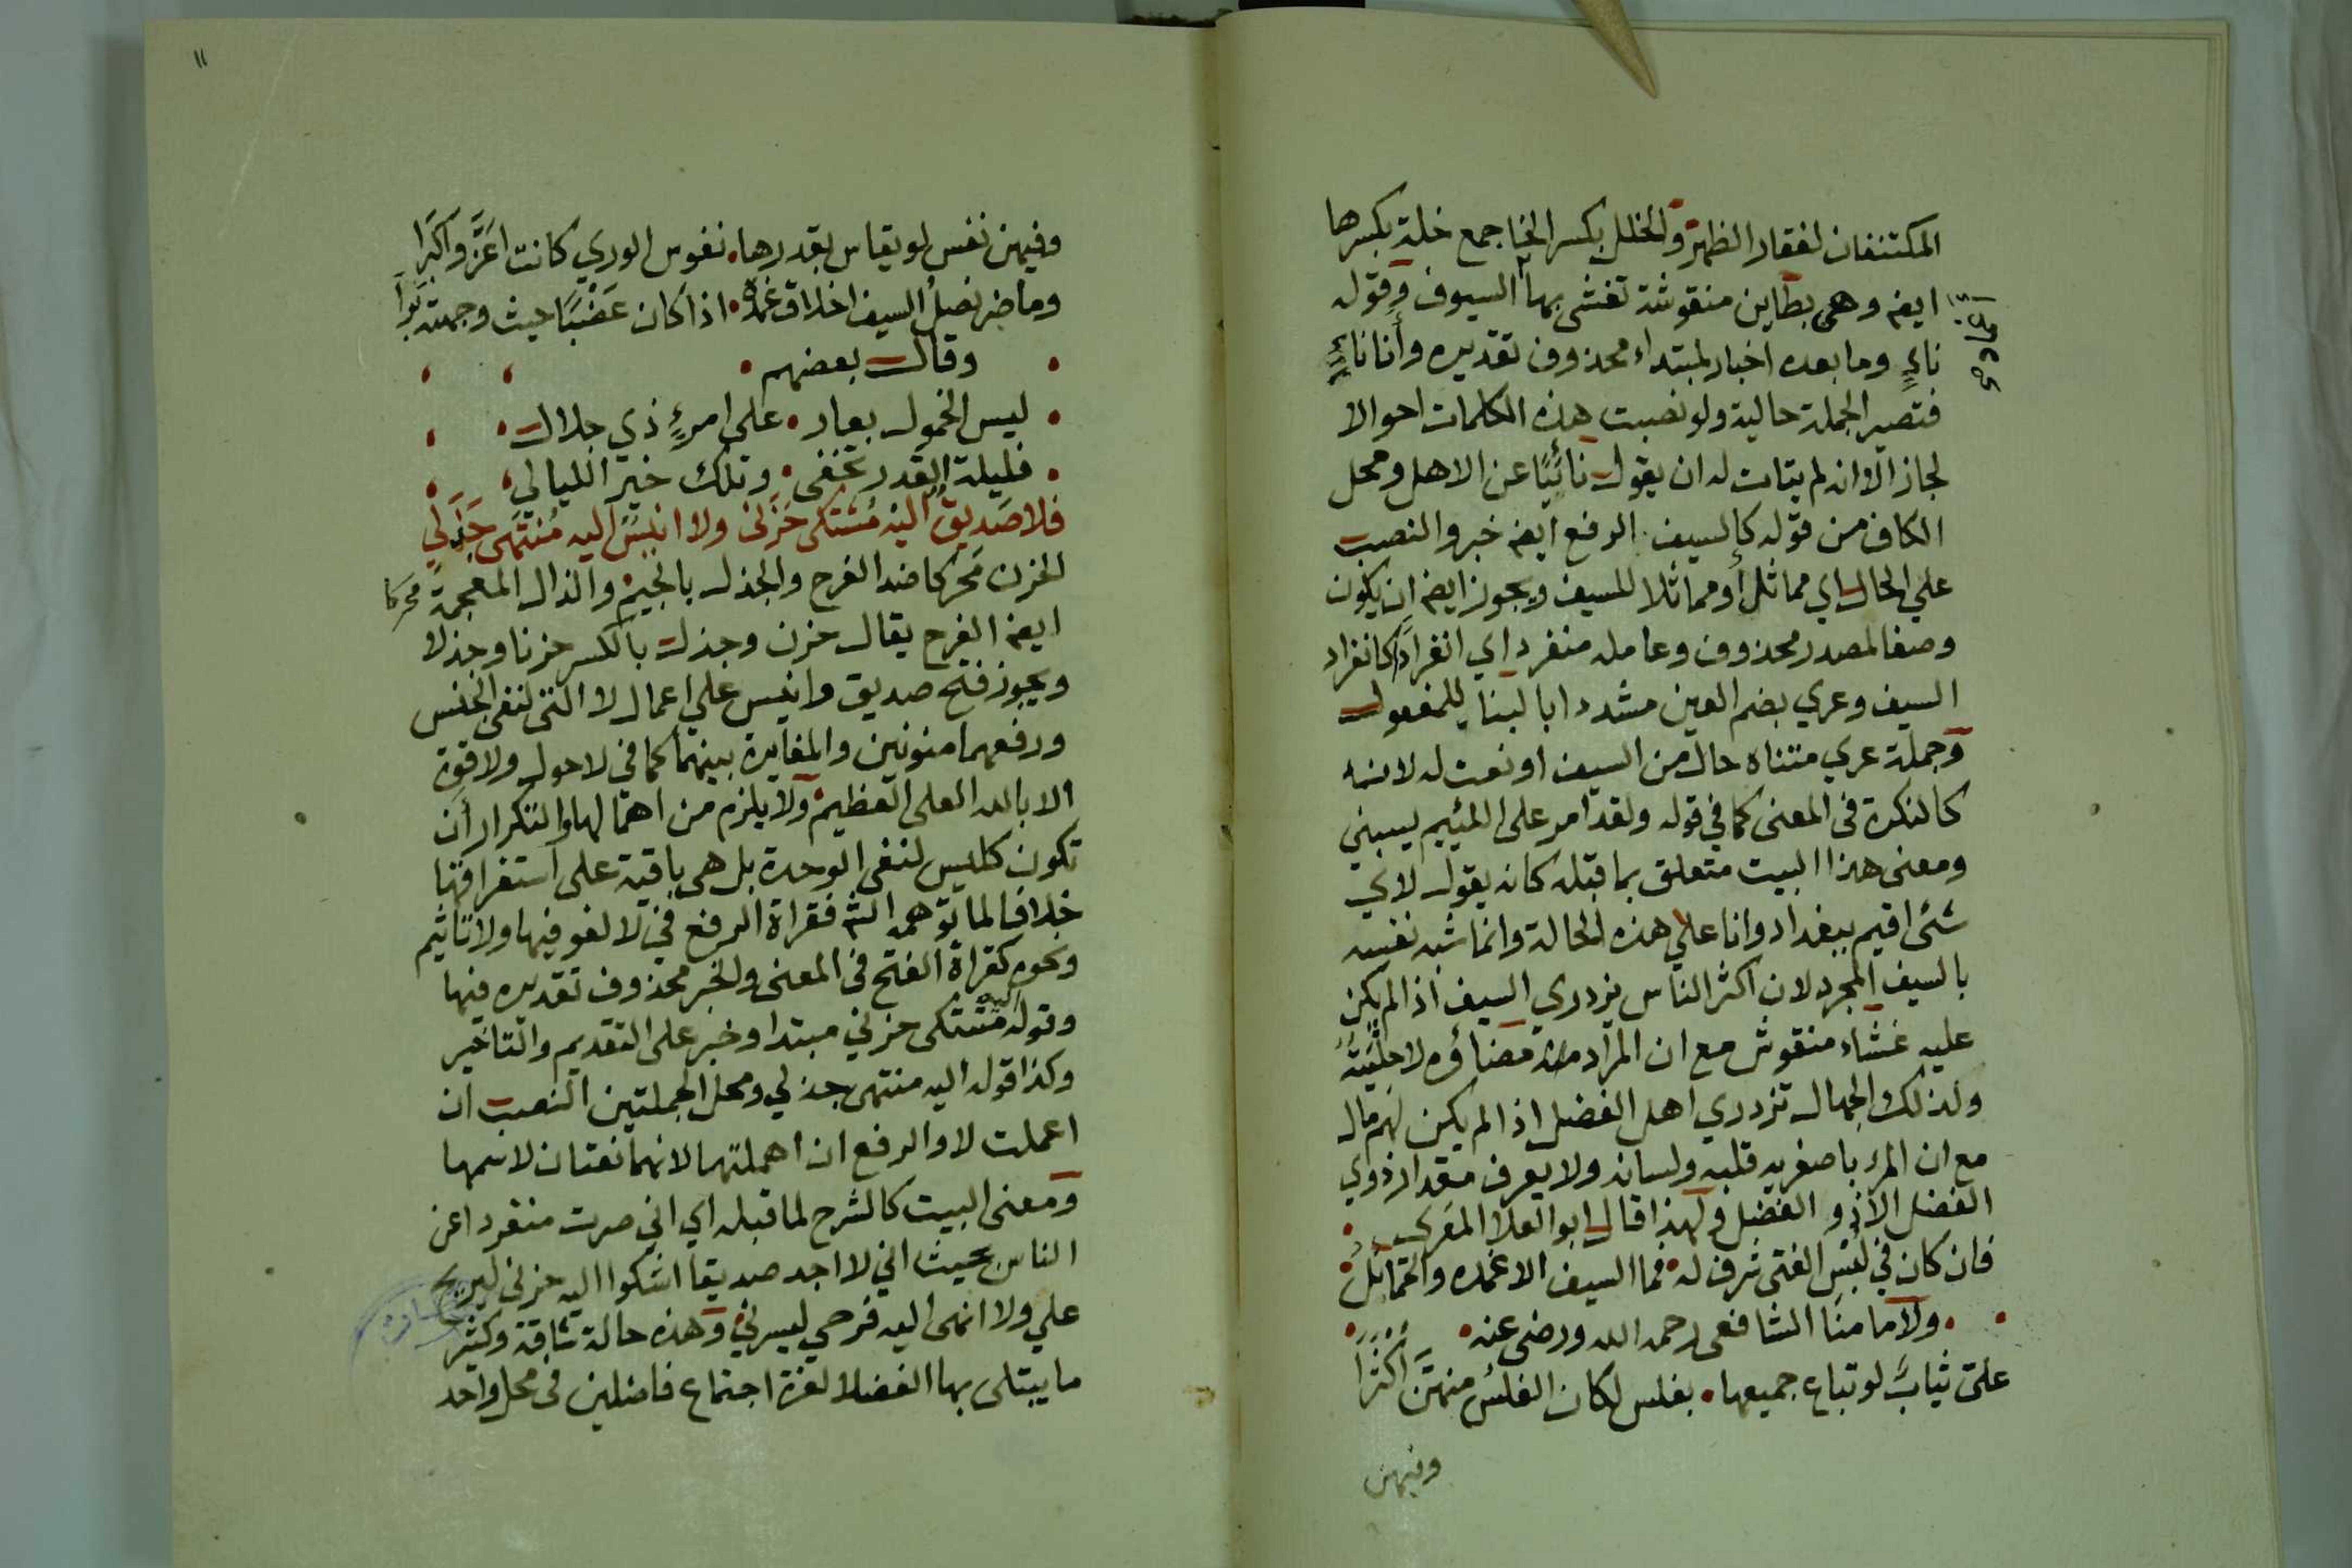 المكتنفان لفقار الظهر والخلل بكسر الخا جمع خلة بكسرها
ايضه وهي بطاين منقوشة تغشى بها السيوف وقوله
ناءٍ وما بعده اخبار لمبتداء محذوف تقديره وأنا ناءٍ
فتصير الجملة حالية ولو نصبت هذه الكلمات احوالا
لجاز الا انه لم يتات له ان يقول نائيًا عن الاهل ومحل
الكاف من قوله كالسيف الرفع ايضه خبر والنصب
علي الحال اي مماثل أو مماثلا للسيف ويجوز ايضه ان يكون
وصفا لمصدر محذوف وعامله منفرد اي انفرادًا كانفراد
السيف وعري بضم العين مشددا بالبنا للمفعول
وجملة عري متناه حال من السيف او نعت له لانه
كالنكرة في المعنى كما في قوله ولقد امر على اللئيم يسبني
ومعنى هذا البيت متعلق بما قبله كانه يقول لاي
شئ اقيم ببغداد وانا علي هذه الحالة وانما شبه نفسه
بالسيف المجرد لان اكثر الناس يزدري السيف اذا لم يكن
عليه غشاء منقوش مع ان المراد منه مضاؤه لا حليته
ولذلك الجهال تزدري اهل الفضل اذا لم يكن لهم مال
مع ان المرء باصغريه قلبه ولسانه ولا يعرف مقدار ذوي
الفضل الا ذو الفضل ولهذا قال ابو العلا المعري
فان كان في لبس الفتى شرف له فما السيف الا غمده والحمائل
ولامامنا الشافعي رحمه الله ورضى عنه
على ثيابٌ لو تباع جميعها بفلس لكان الفلس منهن اكثرا
وفيهن
١١
وفيهن نفس لو يقاس بقدرها نفوس الوري كانت اعزَّ واكبرا
وما ضر نصل السيف اخلاق غمده اذا كان عضبًا حيث وجهته برا
وقال بعضهم
ليس الخمول بعار على امرءٍ ذي جلال
فليلة القدر تخفى وتلك خير الليالي
فلا صديق اليه مشتكى حَزَني ولا انيس اليه منتهى جَذَلي
الحزن محركا ضد الفرح والجذل بالجيم والذال المعجمة محركا
ايضه الفرح يقال حزن وجذل بالكسر حزنا وجذلا
ويجوز فتح صديق وانيس علي اعمال لا التي لنفي الجنس
ورفعهما منونين والمغايرة بينهما كما في لا حول ولا قوة
الا بالله العلى العظيم ولا يلزم من اهمالها والتكرار أن
تكون كليس لنفي الوحدة بل هي باقية على استغراقها
خلافا لما توهمه الش فقراة الرفع في لا لغو فيها ولا تاثيم
ونحوه كقراة الفتح في المعنى والخبر محذوف تقديره فيها
وقوله اليه مشتكى حزني مبتدا وخبر على التقديم والتاخير
وكذا قوله اليه منتهى جذلي ومحل الجملتين النصب ان
اعملت لا والرفع ان اهملتها لانهما نعتان لاسمها
ومعنى البيت كالشرح لما قبله اي اني صرت منفردا عن
الناس بحيث اني لا اجد صديقا اشكوا اليه حزني ليريح
علي ولا انهى اليه فرحي ليسرني وهذه حالة شاقة وكثيرا
ما يبتلى بها الفضلا لعزة اجتماع فاضلين في محل واحد